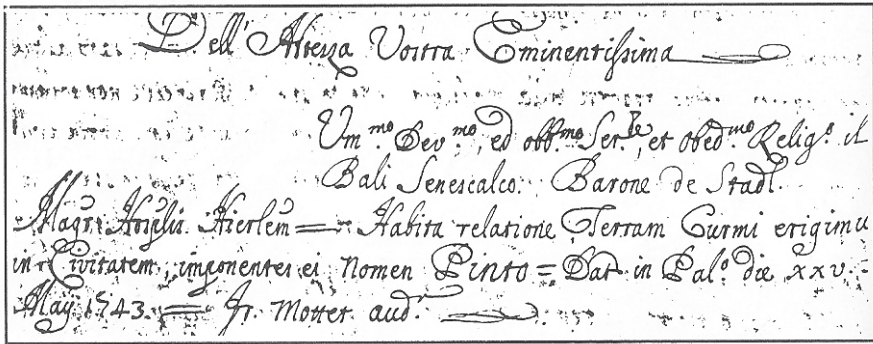 Dell' Altezza Vostra Eminentissima
Um.mo Dev.mo, ed obb.mo Ser.re, et obed.mo Relig.o il
Bali Senescalco. Barone de Stadl.
Magr. Hosplis Hierlem = Habita relatione Terram Curmi erigimu
in Civitatem, imponentes ei nomen Pinto = Dat in Pal.o die xxv.
Maÿ 1743. = Fr. Mottet aud.r